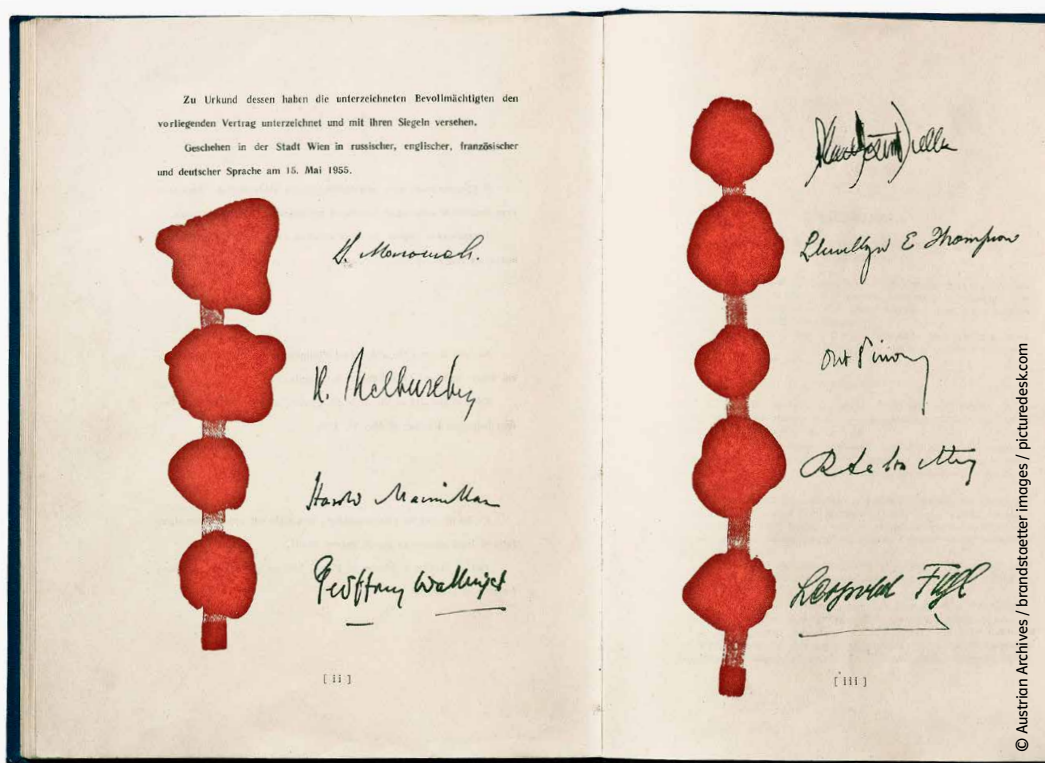 Zu Urkund dessen haben die unterzeichneten Bevollmächtigten den
vorliegenden Vertrag unterzeichnet und mit ihren Siegeln versehen.
Geschehen in der Stadt Wien in russischer, englischer, französischer
und deutscher Sprache am 15. Mai 1955.
Harold Macmillan
Geoffrey Wallinger
[ ii ]
Llewellyn E Thompson
Leopold Figl
[ iii ]
© Austrian Archives / brandstaetter images / picturedesk.com